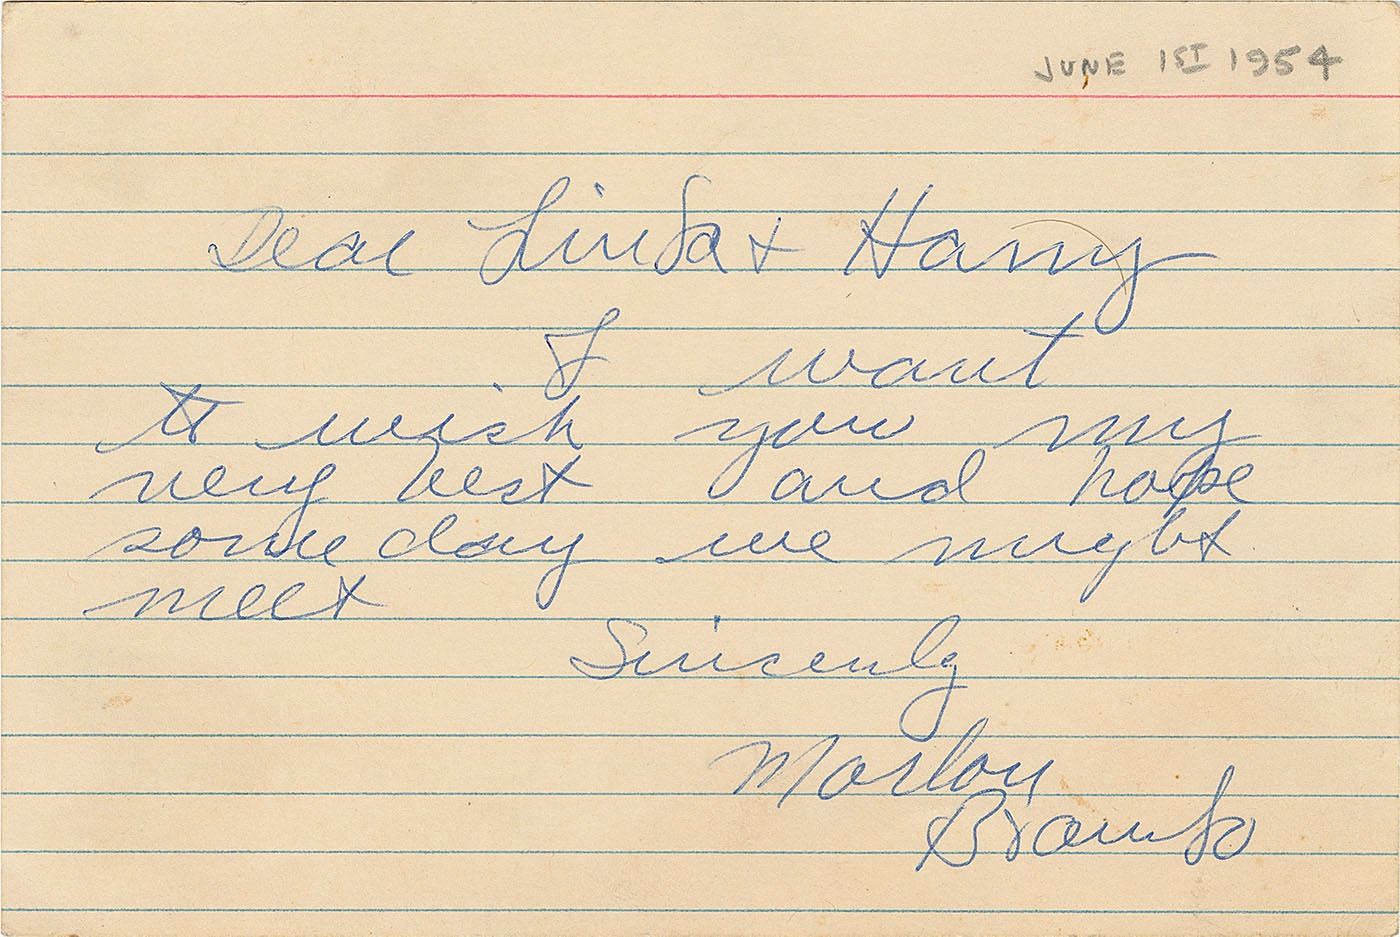 JUNE 1ST 1954
Dear Linda + Harry
I want
to wish you my
very best and hope
some day we might
meet
Sincerely
Marlon
Brando